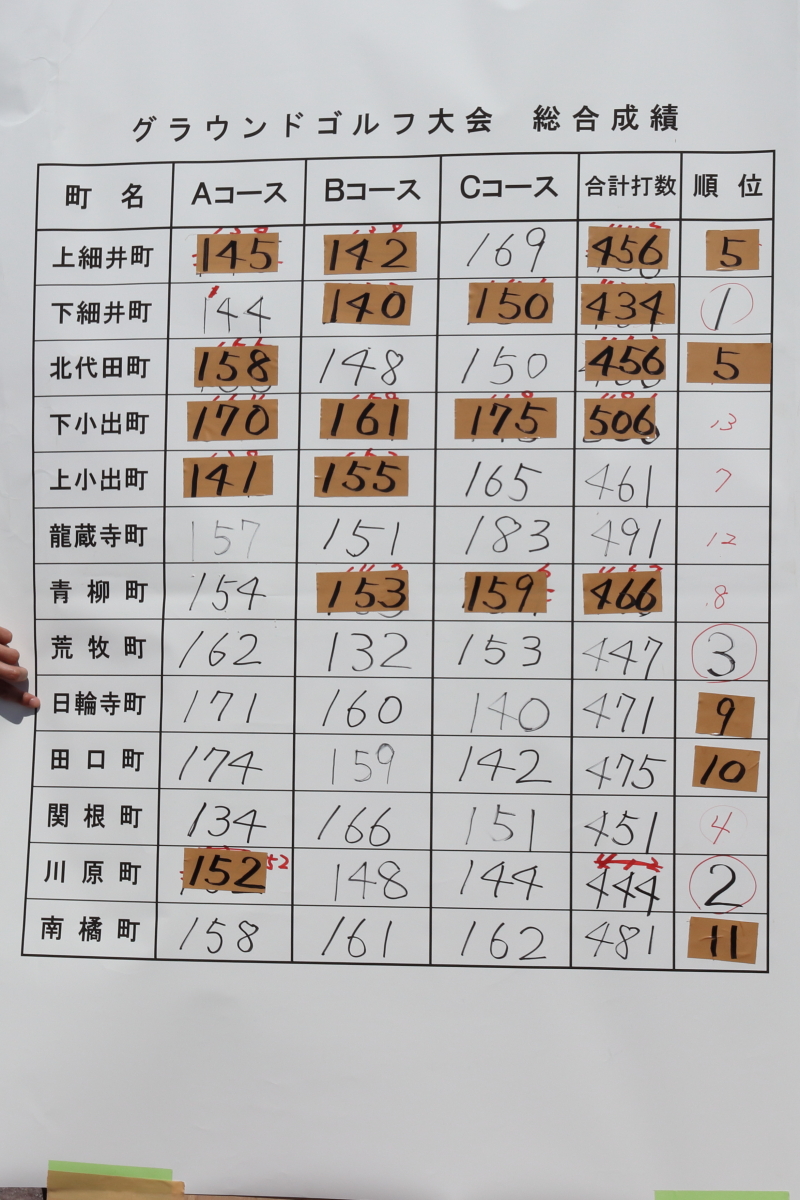 グラウンドゴルフ大会 総合成績
町名 Aコース Bコース Cコース 合計打数 順位
上細井町 145 142 169 456 5
下細井町 144 140 150 434 1
北代田町 158 148 150 456 5
下小出町 170 161 175 506 13
上小出町 141 155 165 461 7
龍蔵寺町 157 151 183 491 12
青柳町 154 153 159 466 8
荒牧町 162 132 153 447 3
日輪寺町 171 160 140 471 9
田口町 174 159 142 475 10
関根町 134 166 151 451 4
川原町 152 52 148 144 444 2
南橘町 158 161 162 481 11